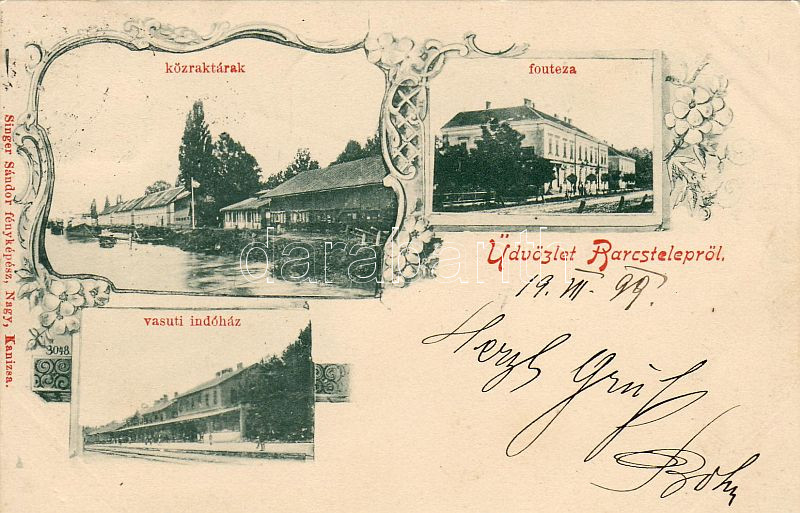 közraktárak
fouteza
Üdvözlet Barcstelepröl.
19. III. 99.
Herzl. Gruß
Bohn
vasuti indóház
3048
Singer Sándor fényképész, Nagy, Kanizsa.
darabanth